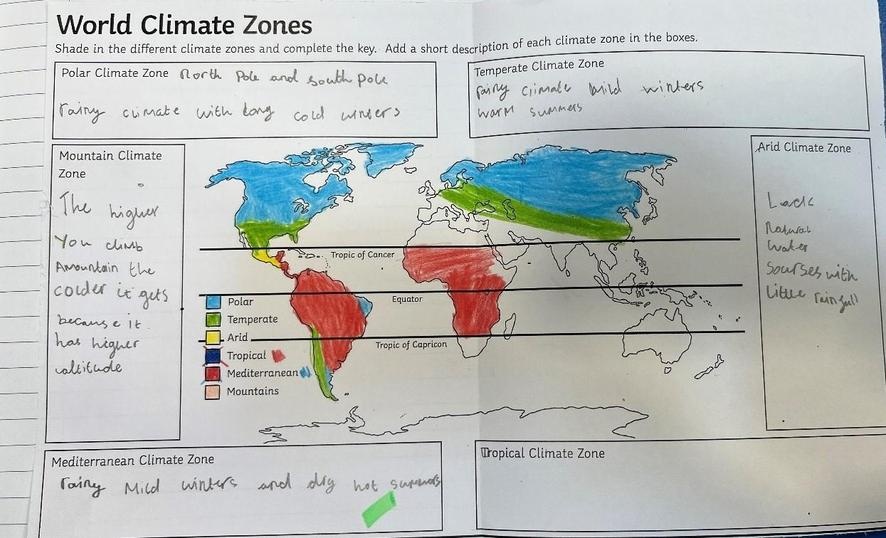 World Climate Zones
Shade in the different climate zones and complete the key. Add a short description of each climate zone in the boxes.
Polar Climate Zone North Pole and South Pole
rainy climate with long cold winters
Temperate Climate Zone
rainy climate mild winters
warm summers
Mountain Climate
Zone
The higher
You climb
Amountain the
colder it gets
because it
has higher
altitude
Arid Climate Zone
Lack
Natural
Water
Sourses with
little rainfull
Tropic of Cancer
Equator
Tropic of Capricorn
Polar
Temperate
Arid
Tropical
Mediterranean
Mountains
Mediterranean Climate Zone
rainy Mild winters and dry hot summers
Tropical Climate Zone